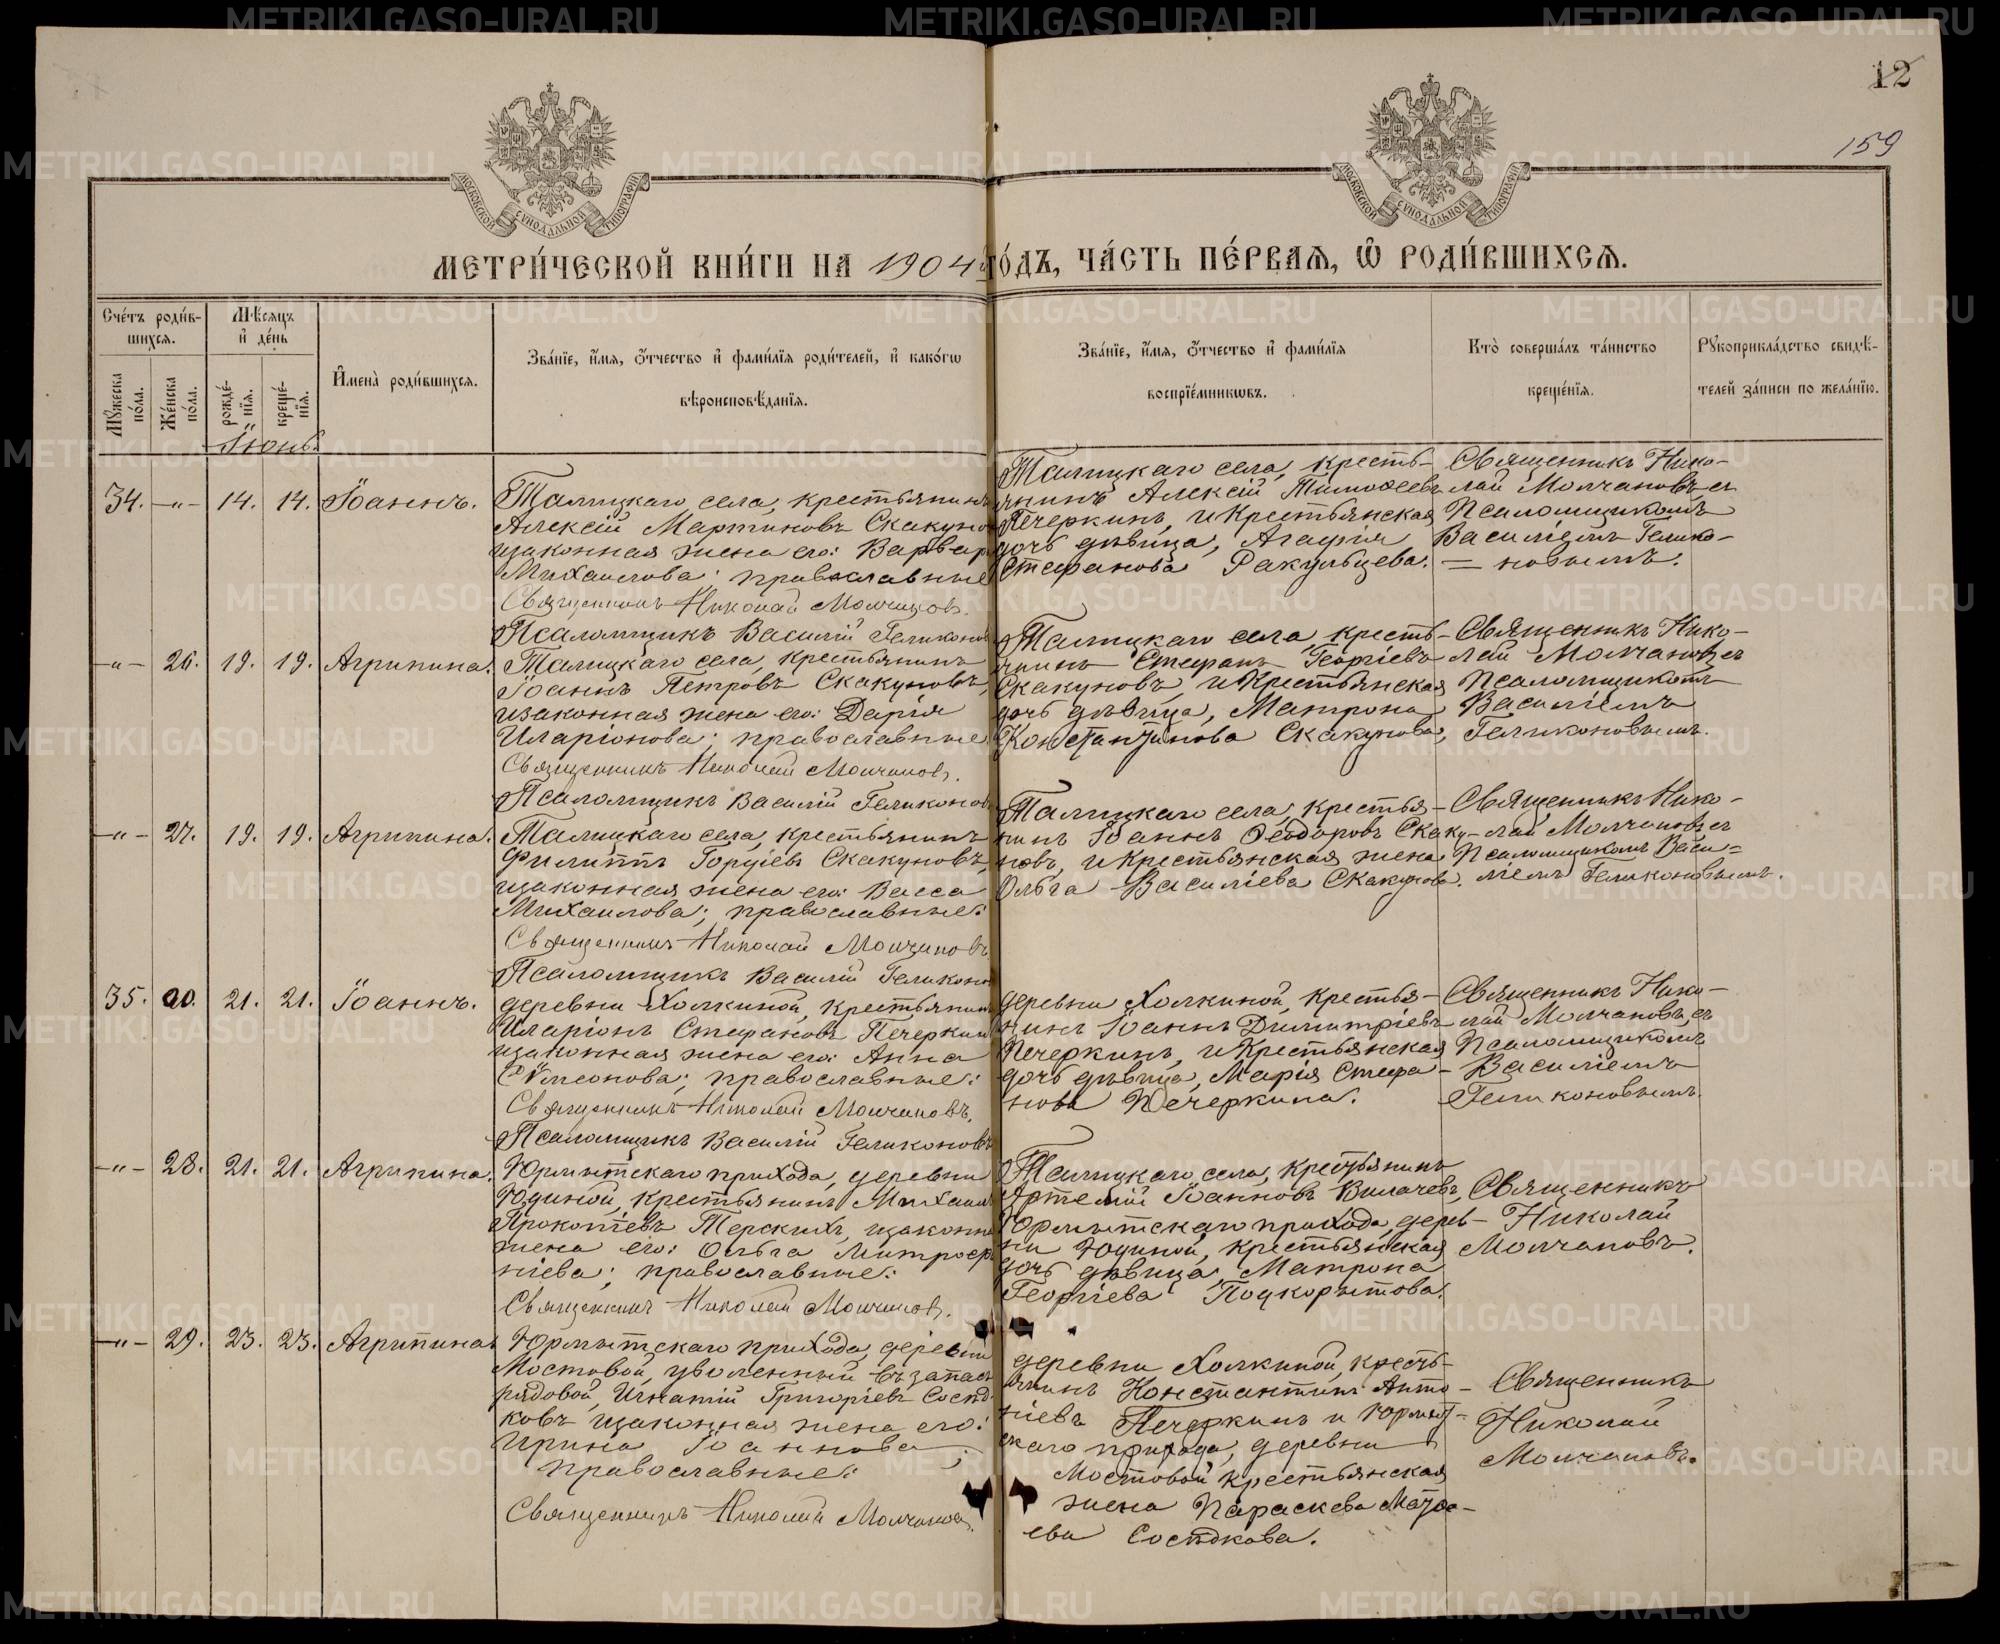 12
159
МОСКОВСКОЙ СѴНОДАЛЬНОЙ ТИПОГРАФІИ
МОСКОВСКОЙ СѴНОДАЛЬНОЙ ТИПОГРАФІИ
МЕТРИ́ЧЕСКОЙ КНИ́ГИ НА 1904 ГО́ДЪ, ЧА́СТЬ ПЕ́РВАѦ, Ѡ РОДИ́ВШИХСѦ.
Сче́тъ роди́в-
шихсѧ.
Мѣ́сѧцъ
и҆ де́нь
Мꙋ́жеска
по́ла.
Же́нска
по́ла.
рожде́-
нїѧ.
креще́-
нїѧ.
И҆мена̀ роди́вшихсѧ.
Зва́нїе, и҆́мѧ, ѻ҆́тчество и҆ фами́лїѧ роди́телей, и҆ како́гѡ
вѣроисповѣ́данїѧ.
Зва́нїе, и҆́мѧ, ѻ҆́тчество и҆ фами́лїѧ
воспрїе́мникѡвъ.
Кто̀ соверша́лъ та́инство
креще́нїѧ.
Рꙋкоприкла́дство свидѣ́-
телей за́писи по жела́нїю.
Іюнь.
34. -"- 14. 14. Іоаннъ.
Талицкаго села, крестьянинъ
Алексій Мартиновъ Скакунов
изаконная жена его: Варвар
Михаилова; православные
Священникъ Николай Молчановъ.
Псаломщикъ Василій Геликонов
Талицкаго села, кресть-
янинъ Алексій Тимоѳеевъ
Печеркинъ, и Крестьянская
дочь дѣвица, Агафія
Стефанова Ракульцева.
Священникъ Нико-
лай Молчановъ, съ
Псаломщикомъ
Василіемъ Гелико-
= новымъ.
-"- 26. 19. 19. Агрипина.
Талицкаго села, крестьянинъ
Іоаннъ Петровъ Скакуновъ,
изаконная жена его: Дарія
Иларіонова; православные
Священникъ Николай Молчановъ.
Псаломщикъ Василій Геликонов
Талицкаго села, кресть-
янинъ Стефанъ Георгіевъ
Скакуновъ, и Крестьянская
дочь дѣвица, Матрона
Константинова Скакунова,
Священникъ Нико-
лай Молчановъ, съ
Псаломщикомъ
Василіемъ
Геликоновымъ.
-"- 27. 19. 19. Агрипина.
Талицкаго села, крестьянинъ
Филиппъ Гордіевъ Скакуновъ,
изаконная жена его: Васса
Михаилова; православные:
Священникъ Николай Молчановъ
Псаломщикъ Василій Геликоно
Талицкаго села, крестья-
нинъ Іоаннъ Ѳеодоровъ Скаку-
новъ, и Крестьянская жена
Ольга Василіева Скакунова.
Священникъ Нико-
лай Молчановъ, съ
Псаломщикомъ Васи-
ліемъ Геликоновымъ.
35. 21. 21. Іоаннъ.
деревни Холкиной, крестьянинъ
Иларіонъ Стефановъ Печеркин
изаконная жена его: Анна
Сѵмеонова; православные:
Священникъ Николай Молчановъ.
Псаломщикъ Василій Геликоновъ
деревни Холкиной, крестья-
нинъ Іоаннъ Димитріевъ
Печеркинъ, и Крестьянская
дочь дѣвица, Марія Стефа-
нова Печеркина.
Священникъ Нико-
лай Молчановъ, съ
Псаломщикомъ
Василіемъ
Геликоновымъ.
-"- 28. 21. 21. Агрипина.
Юрмытскаго прихода, деревни
Юдиной, крестьянинъ Михаил
Прокопіевъ Терскихъ, изаконн
жена его: Ольга Митроф
ніева; православные:
Священникъ Николай Молчановъ.
Талицкаго села, крестьянинъ
Артемій Іоанновъ Вилачевъ,
Юрмытскаго прихода, дерев-
ни Юдиной, крестьянская
дочь дѣвица, Матрона
Георгіева Подкорытова.
Священникъ
Николай
Молчановъ.
-"- 29. 23. 23. Агрипина
Юрмытскаго прихода, деревни
Мостовой, уволенный въ запасъ
рядовой, Игнатій Григоріевъ Состд
ковъ изаконная жена его:
Ирина Іоаннова;
православные:
Священникъ Николай Молчановъ.
деревни Холкиной, кресть-
янинъ Константинъ Анто-
ніевъ Печеркинъ и Юрмыт-
скаго прихода, деревни
Мостовой крестьянская
жена Параскева Матѳе-
ева
METRIKI.GASO-URAL.RU